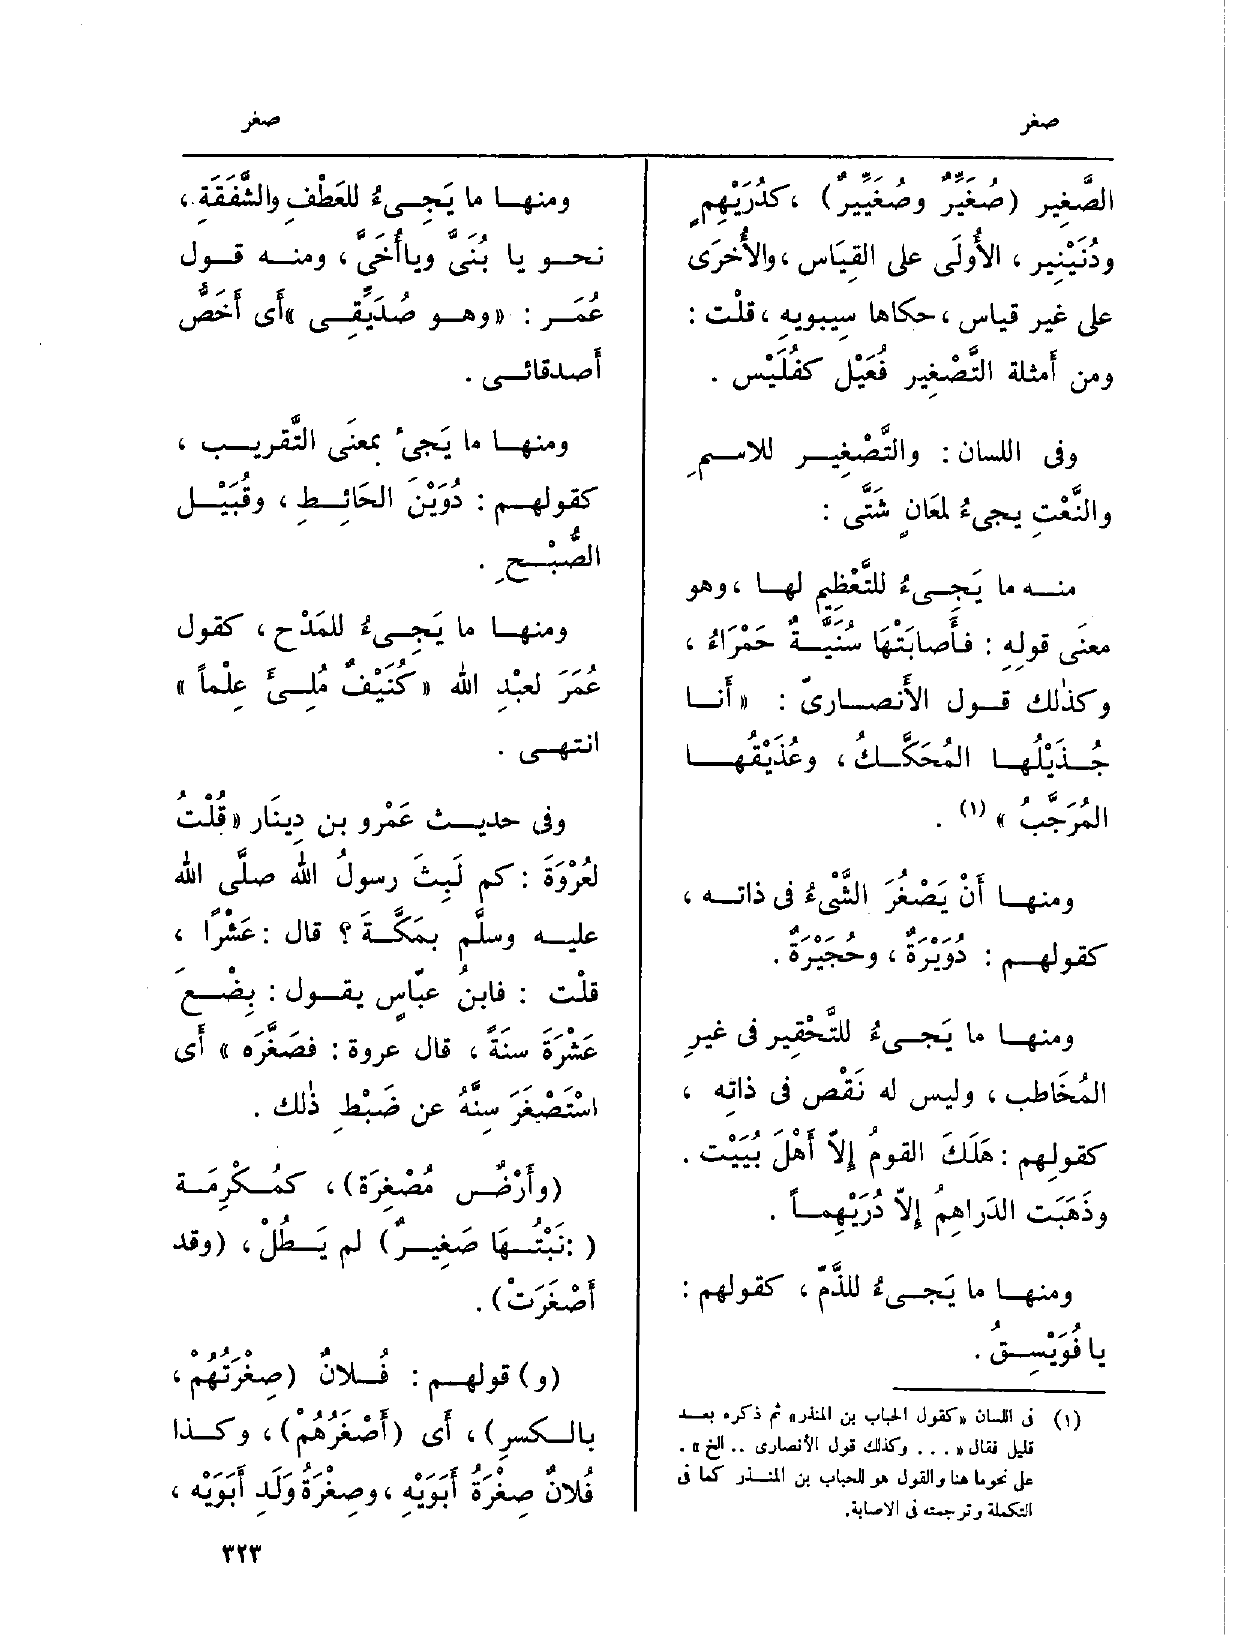 صغر
صغر
الصَّغِير (صُغَيِّرٌ وصُغَيِّيرٌ) ، كدُرَيْهِمٍ
ودُنَيْنِير ، الأُولَى على القِيَاس ، والأُخْرَى
على غير قياس ، حكاها سيبويه ، قلْت :
ومن أَمثلة التَّصْغِير فُعَيْل كفُلَيْس .
وفى اللسان : والتَّصْغِيــر للاسمِ
والنَّعْتِ يجىءُ لمَعَانٍ شَتَّى :
منه ما يَجىءُ للتَّعْظِيمِ لها ، وهو
معنَى قولِهِ : فأَصابَتْهَا سُنَيَّةٌ حَمْرَاءُ ،
وكذٰلك قول الأَنصارىّ : «أَنا
جُذَيْلُها المُحَكَّكُ ، وعُذَيْقُها
المُرَجَّبُ » (١) .
ومنها أَنْ يَصْغُرَ الشَّىْءُ فى ذاتــه ،
كقولهم : دُوَيْرَةٌ ، وحُجَيْرَةٌ .
ومنها ما يَجىءُ للتَّحْقِير فى غيرِ
المُخَاطب ، وليس له نَقْص فى ذاتِه ،
كقولِهم : هَلَكَ القومُ إِلاّ أَهْلَ بُيَيْت .
وذَهَبَت الدّراهِمُ إِلاّ دُرَيْهِماً .
ومنها ما يَجىءُ للذَّمّ ، كقولهم :
يا فُوَيْسِقُ .
(١) فى اللسان «كقول الحباب بن المنذر» ثم ذكره بعد
قليل فقال « . . . وكذلك قول الأنصارى .. الخ » .
على نحو ما هنا والقول هو للحباب بن المنذر كما فى
التكملة وترجمته فى الاصابة.
ومنها ما يَجىءُ للعَطْفِ والشَّفَقَةِ ،
نحو يا بُنَىَّ وياأُخَىَّ ، ومنه قول
عُمَر : «وهو صُدَيِّقِى »أَى أَخَصُّ
أَصدقائى .
ومنها ما يَجىءُ بمعنَى التَّقرِيب ،
كقولهم : دُوَيْنَ الحَائِط ، وقُبَيْل
الصُّبْحِ .
ومنها ما يَجىءُ للمَدْح ، كقول
عُمَرَ لعبْدِ الله «كُنَيْفٌ مُلِىَّ عِلْماً »
انتهى .
وفى حديث عَمْرِو بن دِينَار «قُلْتُ
لعُرْوَةَ : كم لَبِثَ رسولُ الله صلَّى الله
عليه وسلَّم بمَكَّةَ ؟ قال : عَشْرًا ،
قلْت : فابنُ عبّاسٍ يقول : بِضْعَ
عَشْرَةَ سنَةً ، قال عروة : فصَغَّرَه » أَى
اسْتَصْغَرَ سِنَّهُ عن ضَبْطِ ذٰلك .
(وأَرْضٌ مُصْغِرَة) ، كمُكْرِمَة
( : نَبْتُها صَغِيرٌ) لم يَطُلْ ، (وقد
أَصْغَرَتْ) .
(و) قولهم : فُلانٌ (صِغْرَتُهُمْ ،
بالكسر) ، أَى (أَصْغَرُهُمْ) ، وكذا
فُلانٌ صِغْرَةُ أَبَوَيْهِ ، وصِغْرَةُ وَلَدِ أَبَوَيْه ،
٣٢٣